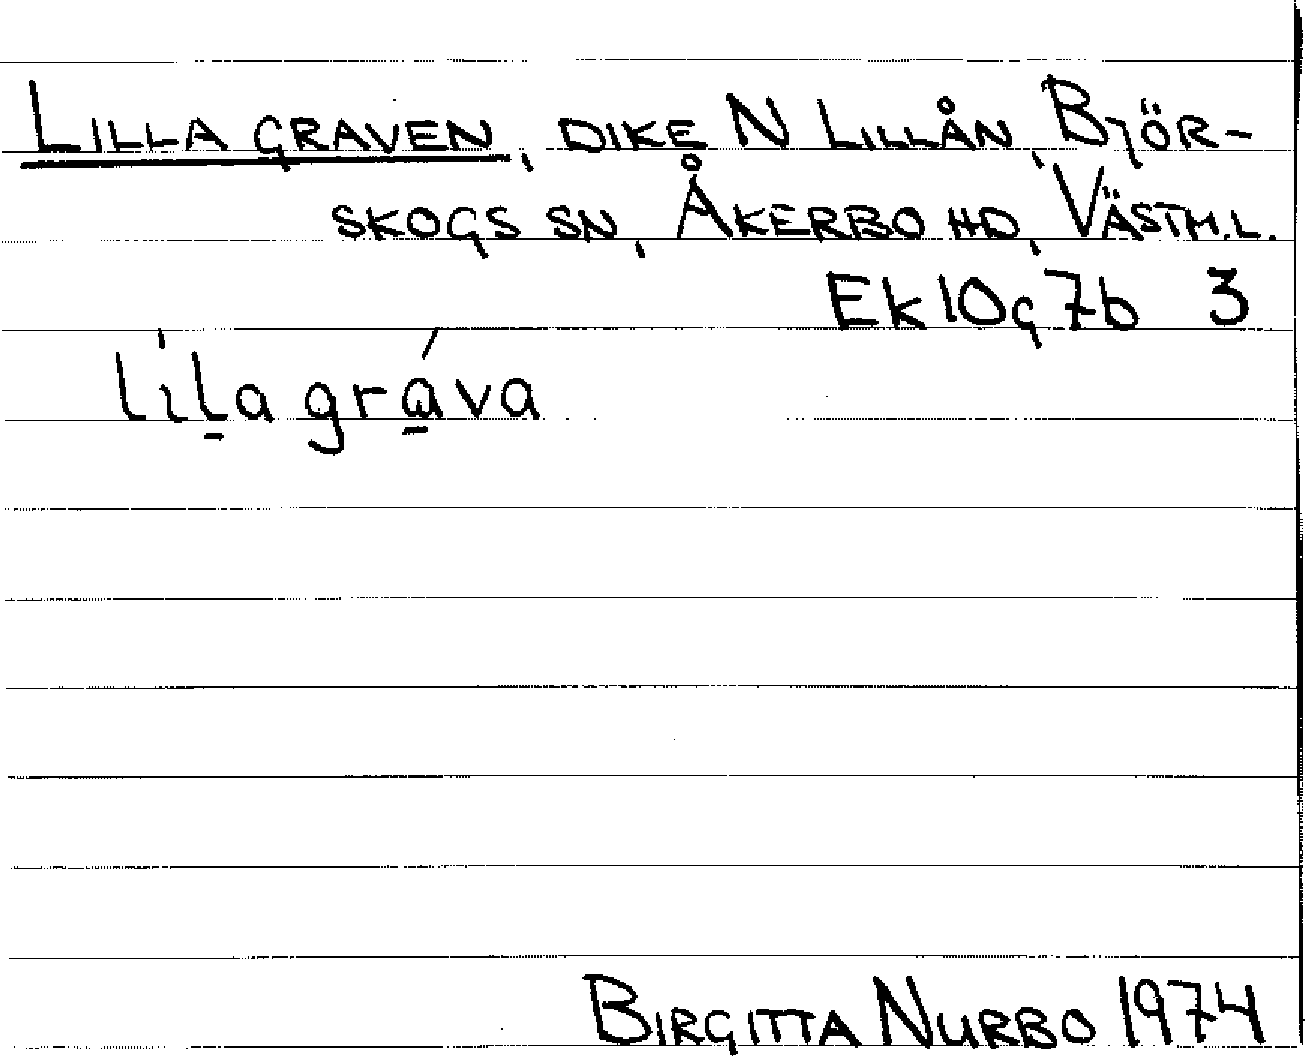 LILLA GRAVEN, DIKE N LILLÅN, BJÖR-
SKOGS SN, ÅKERBO HD, VÄSTM.L.
Ek 10g 7b 3
lìl̲a grá̲va
BIRGITTA NURBO 1974